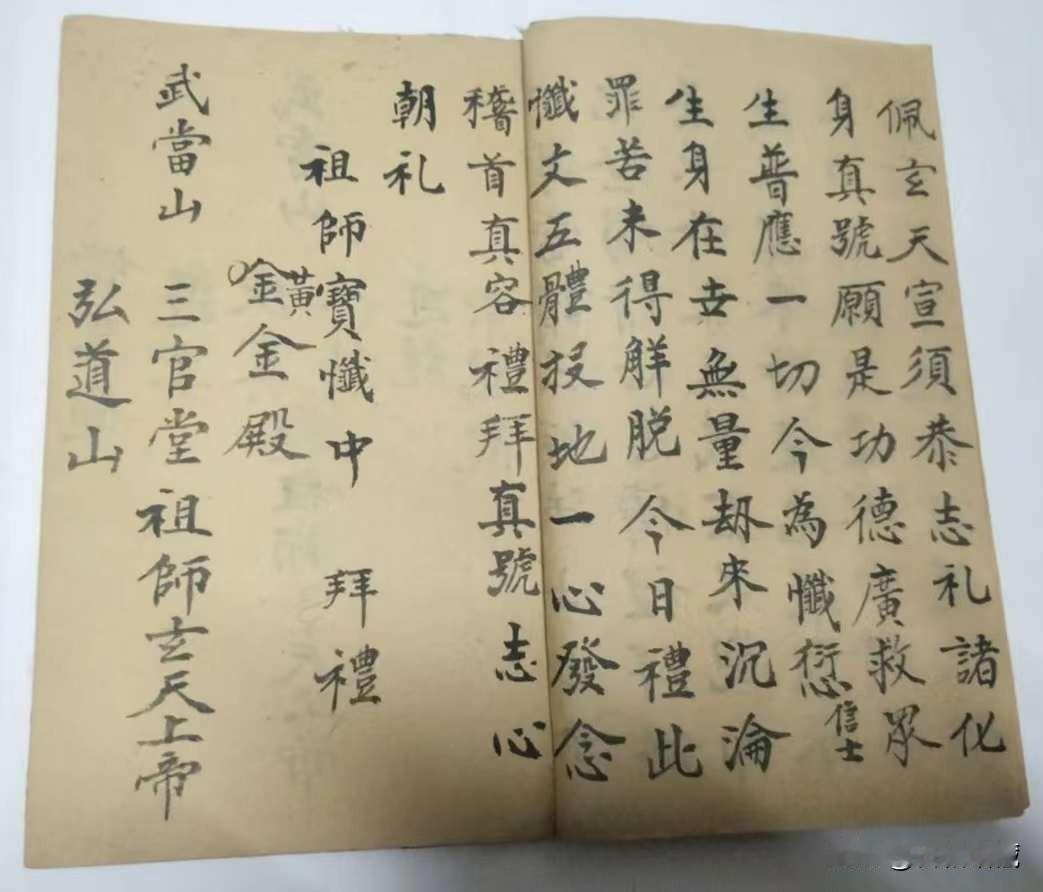 佩玄天宣須恭志礼諸化
身真號願是功德廣救眾
生普應一切今為懺愆信士
生身在世無量劫來沉淪
罪苦未得解脱今日禮此
懺文五體投地一心發念
稽首真容禮拜真號志心
朝礼
祖師寶懺中 拜禮
黃
金金殿
武當山 三官堂 祖師玄天上帝
弘道山